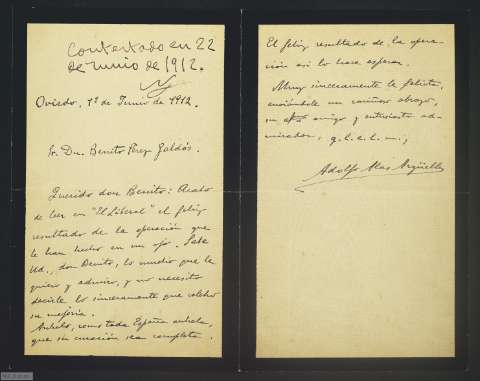 Contestado en 22
de Junio de 1912.
Oviedo, 1º de Junio de 1912.
Sr. Dn. Benito Pérez Galdós.
Querido don Benito: Acabo
de leer en "El Liberal" el feliz
resultado de la operación que
le han hecho en un ojo. Sabe
Ud., don Benito, lo mucho que le
quiero y admiro, y no necesito
decirle lo sinceramente que celebro
su mejoría.
Anhelo, como toda España anhela,
que su curación sea completa.
El feliz resultado de la opera-
ción así lo hace esperar.
Muy sinceramente le felicita,
enviándole un cariñoso abrazo,
su amigo y entusiasta ad-
mirador, q.l.e.l.m.,
Adolfo Alas Argüelles